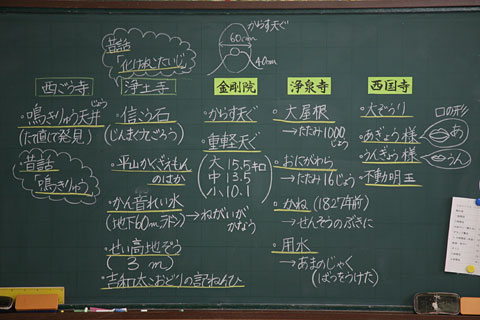 昔話
「化けねこたいじ」
からす天ぐ
60cm
40cm
西ごう寺
・鳴きりゅう天井
じょう
(たて直で発見)
昔話
「鳴きりゅう」
浄土寺
・信こう石
(じんまくでごろう)
・平山かくざえもん
のはか
・かん音れい水
(地下60m、赤ン)
→ねがいが
かなう
・せい高地ぞう
(3m)
・吉和太鼓おどりの記ねんひ
金剛院
・からす天ぐ
・重軽天ぐ
大 15.5キロ
中 13.5
小 10.1
浄泉寺
・大屋根
→たたみ1000
じょう
・おにがわら
→たたみ16じょう
・かね(182年前)
→せんそうのぶきに
・用水
→あまのじゃく
(ばつをうけた)
西国寺
・大ぞうり
・あぎょう様
・うんぎょう様
・不動明王
口の形
あ
うん